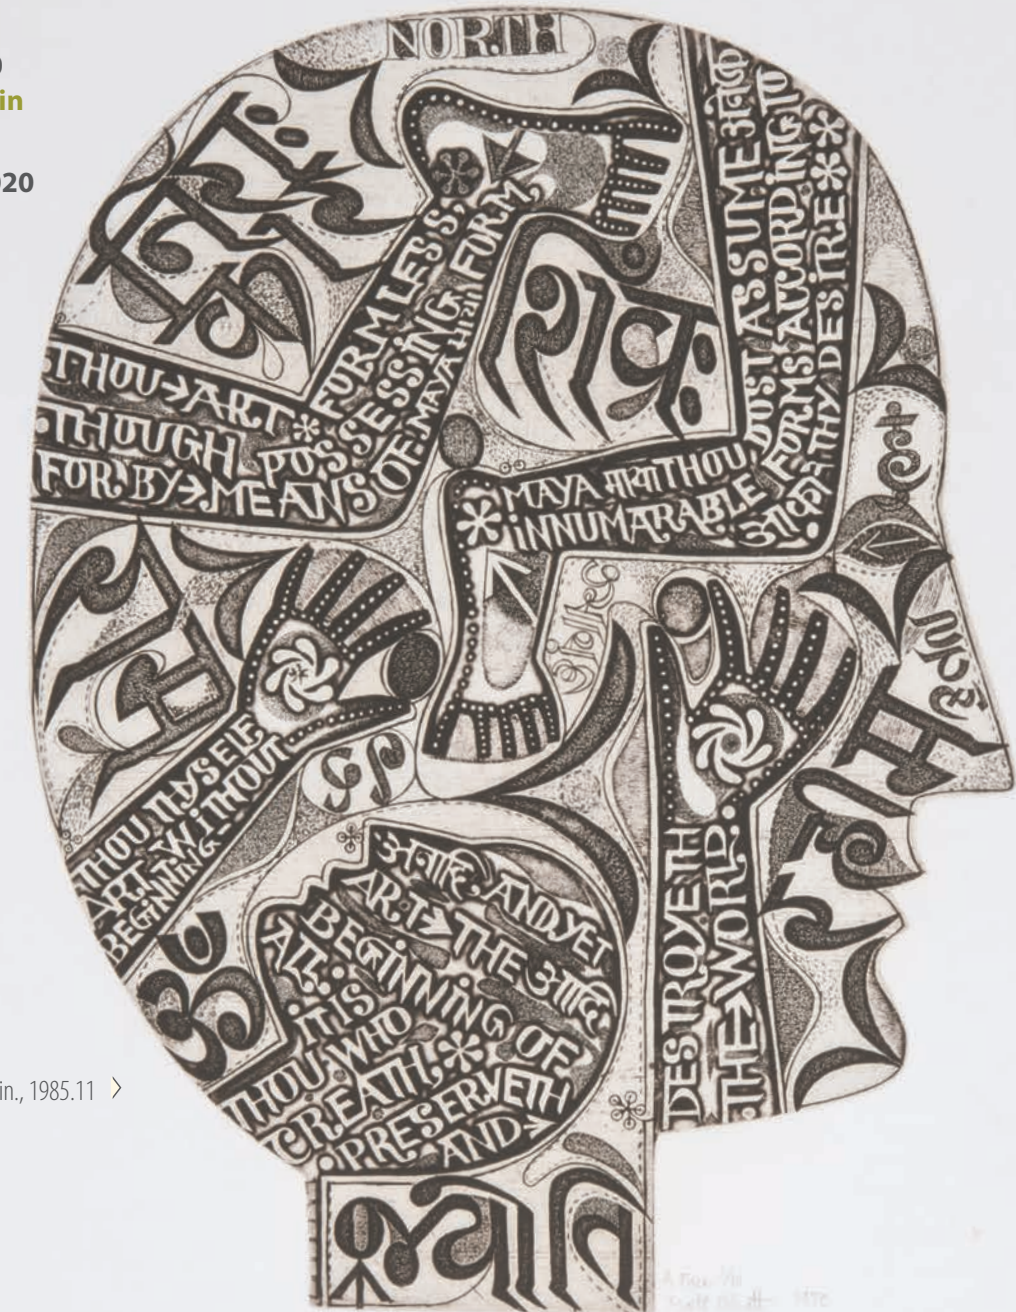 in
020
NORTH
THOU→ART * FORMLESS,
THOUGH POSSESSING FORM,
FOR, BY→MEANS OF MAYA माया
* MAYA माया THOU DOST ASSUME अनेक
INNUMARABLE FORMS ACCORDING TO
THY DESIRE **
THOU THYSELF
ART WITHOUT
BEGINNING
अनादि AND YET
ART→ THE आदि
BEGINNING OF
ALL:
IT IS
THOU WHO
CREATH, *
PRESERVETH
AND→
DESTROYETH
THE→WORLD.
ॐ
in., 1985.11